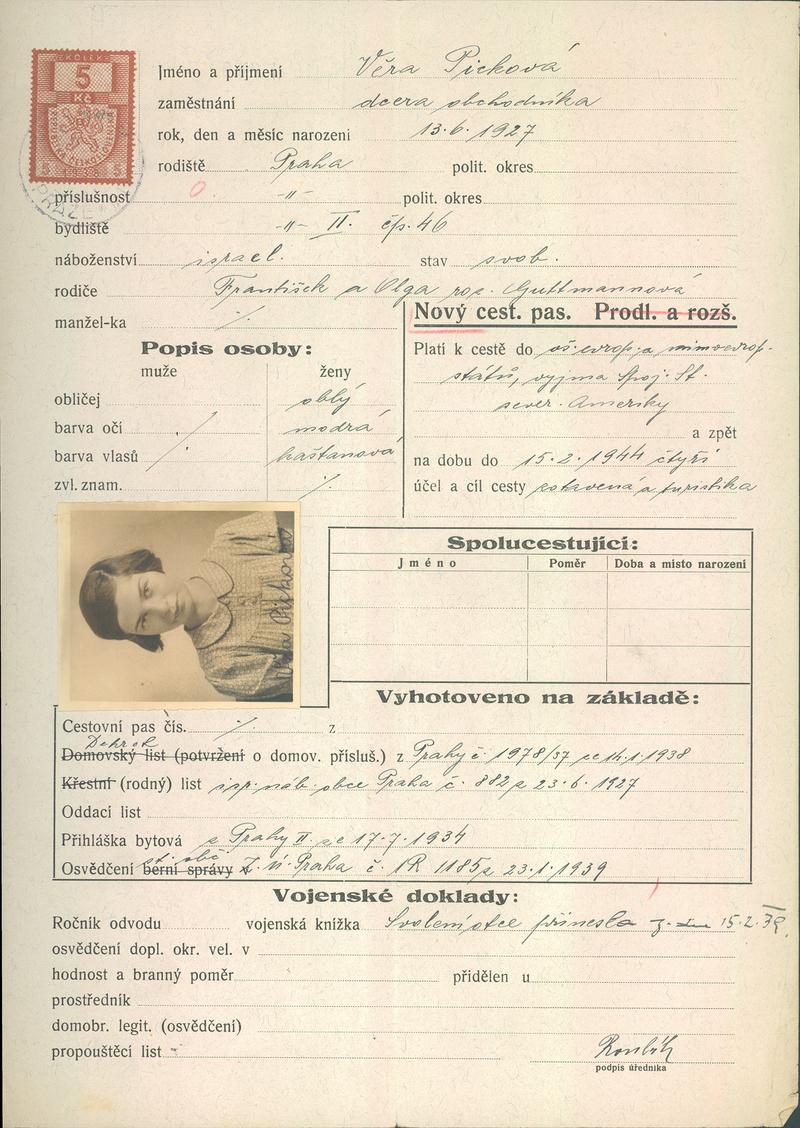 KOLEK
5
Kč
5 1938 5
PRAZE
Jméno a příjmení Věra Picková
zaměstnání dcera obchodníka
rok, den a měsíc narození 13.6.1927
rodiště Praha polit. okres
příslušnost -"- polit. okres
bydliště -"- II. čp. 46
náboženství israel. stav svob.
rodiče František a Olga roz. Guttmannová
manžel-ka ·/.
Nový cest. pas. Prodl. a rozš.
Popis osoby:
muže ženy
obličej oblý
barva očí modrá
barva vlasů kaštanová
zvl. znam. ·/.
Platí k cestě do vš. evrop. a mimoevrop.
států, vyjma Spoj. St.
sever. Ameriky
a zpět
na dobu do 15.2.1944 čtyři
účel a cíl cesty zotavená a turistika
Věra Picková
Spolucestující:
Jméno Poměr Doba a místo narození
Vyhotoveno na základě:
Cestovní pas čís. ·/. z
Dekret
Domovský list (potvrzení o domov. přísluš.) z Prahy č. 1978/37 ze 14.1.1938
Křestní (rodný) list isr. náb. obce Praha č. 882 z 23.6.1927
Oddací list
Přihláška bytová z Prahy II ze 17.7.1934
st. obč.
Osvědčení berní správy Z. ú. Praha č. 1R 1185 z 23.1.1939
Vojenské doklady:
Ročník odvodu vojenská knížka Svolení otce přinesla 15.2.39.
osvědčení dopl. okr. vel. v
hodnost a branný poměr přidělen u
prostředník
domobr. legit. (osvědčení)
propouštěcí list
podpis úředníka